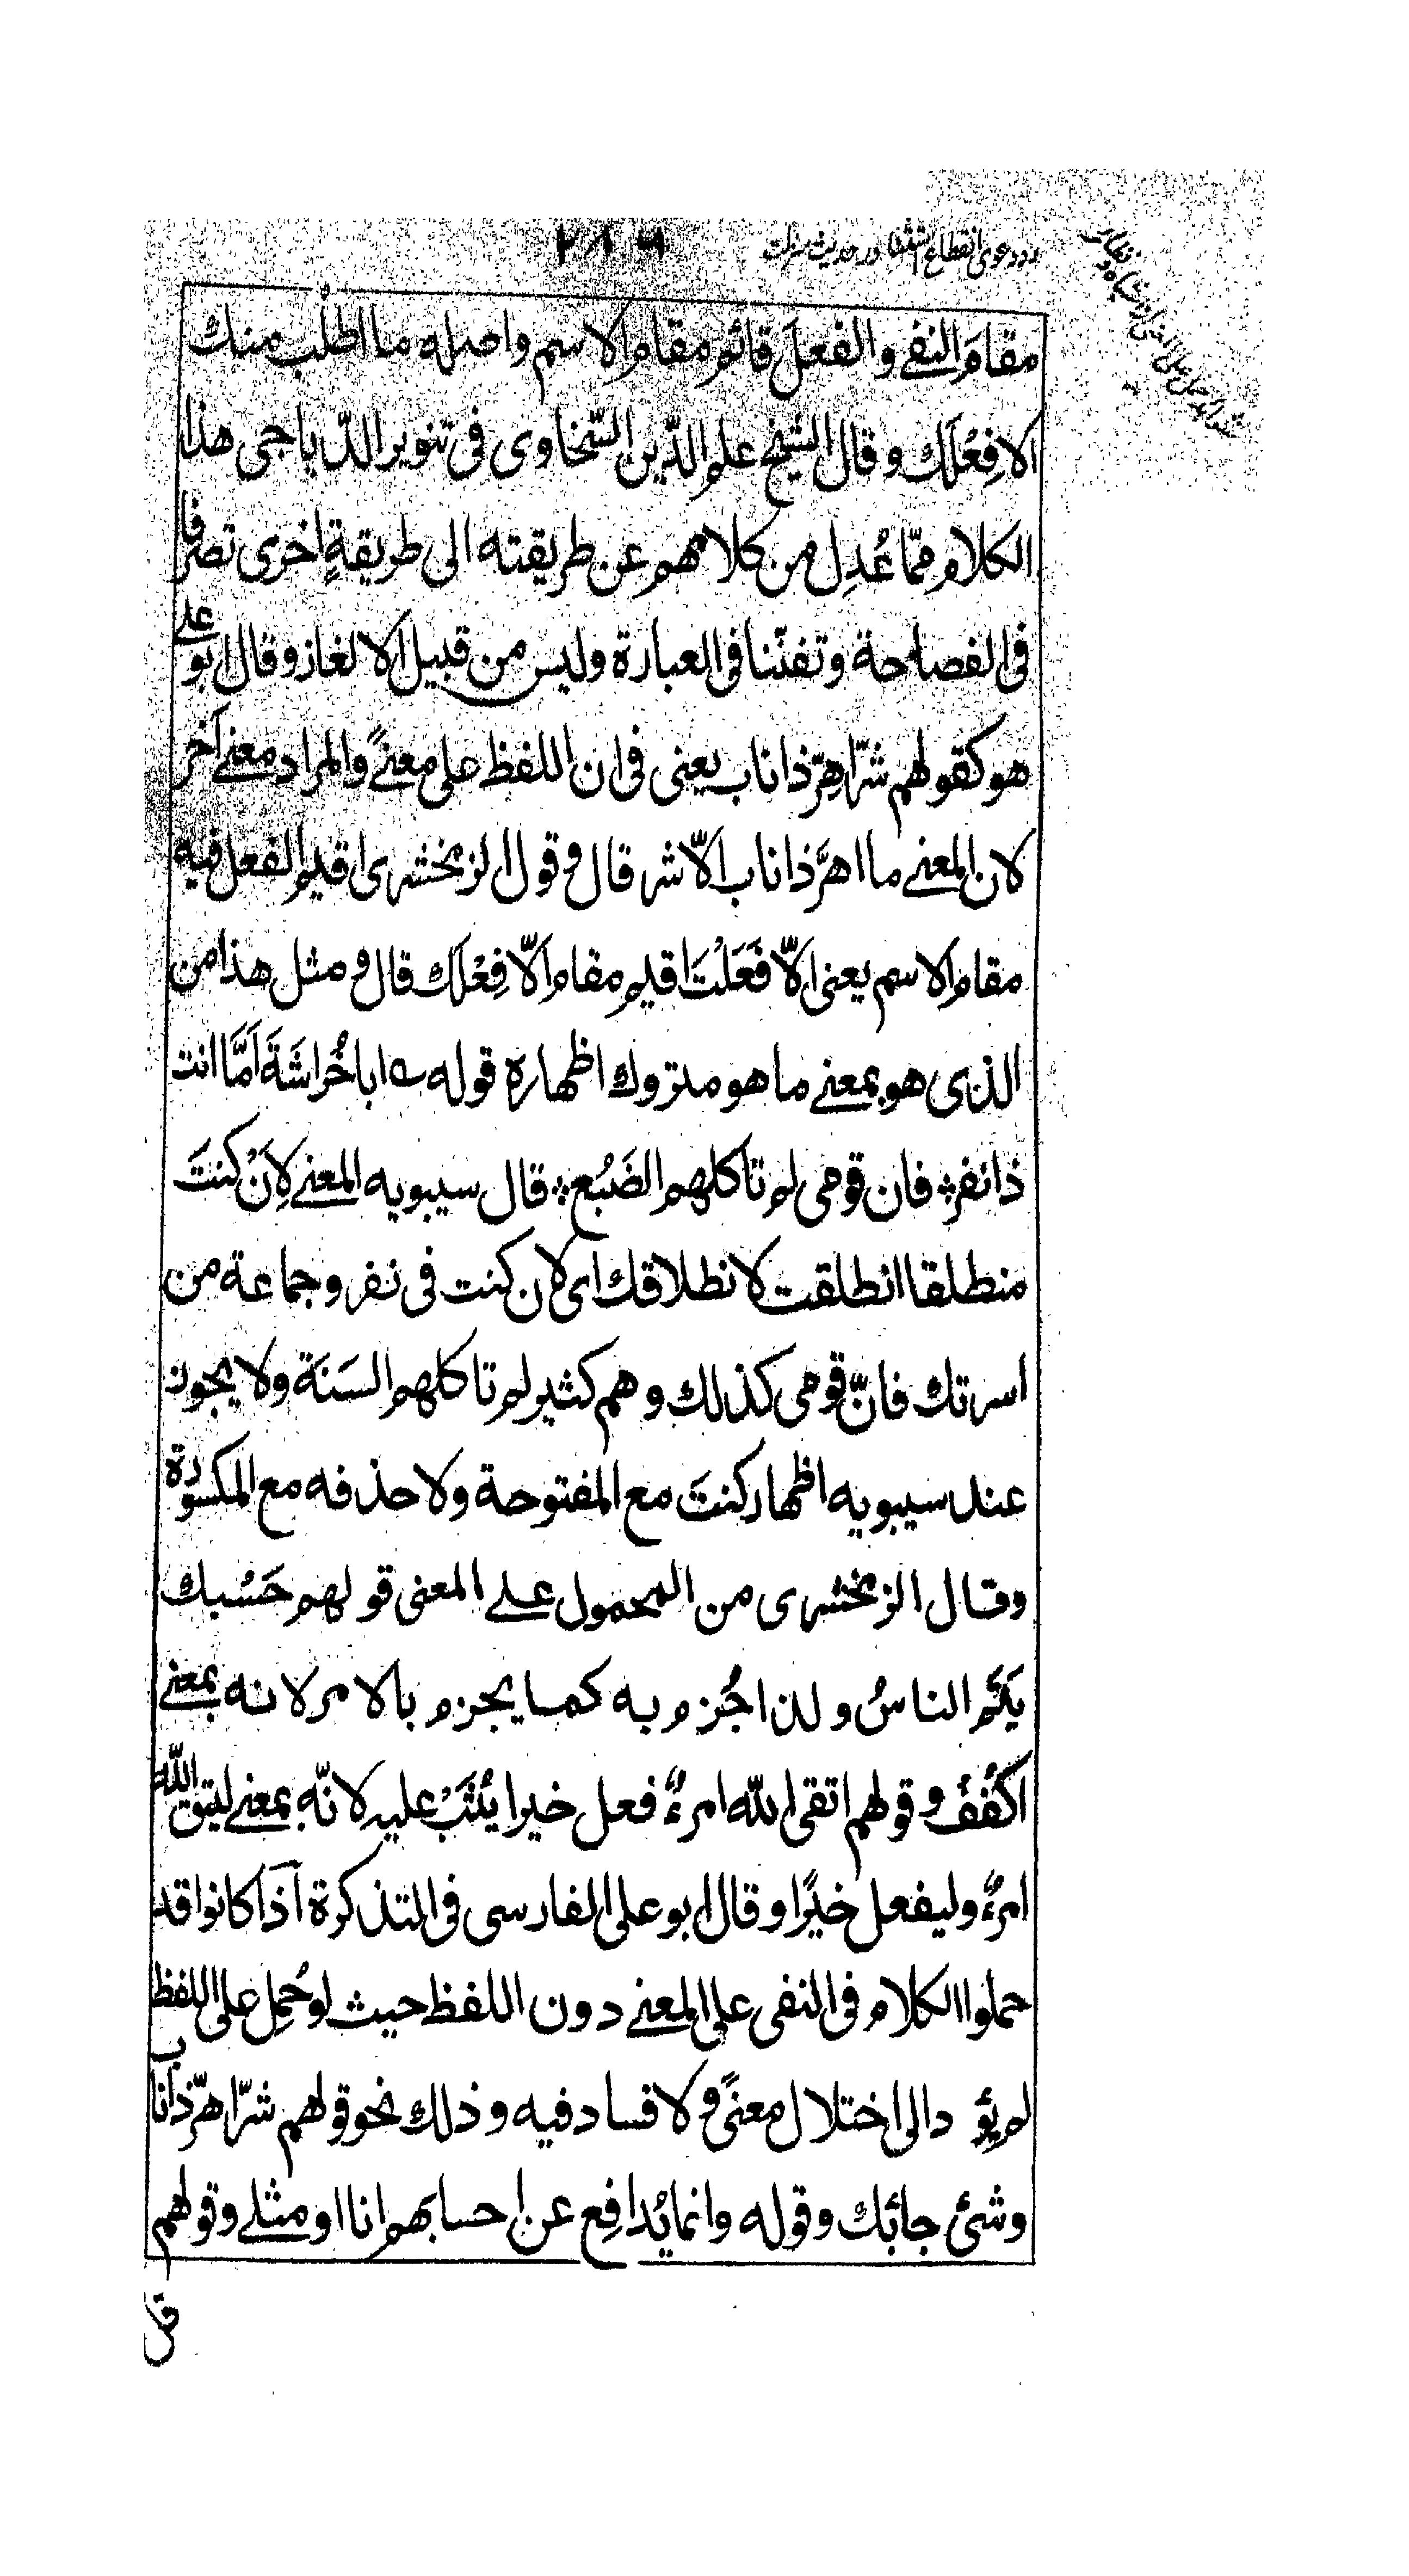 ردد دعوی انقطاع استثنا در حدیث منزلت
۲۸۶
مقامَ النفى والفعلَ قائم مقام الاسم واصله ما اطلب منك
الا فِعْلَك وقال الشيخ علم الدّين السّخاوى فى تنوير الدّياجى هذا
الكلام ممّا عُدِل من كلامهم عن طريقته الى طريقةٍ اخرى تصرفا
فى الفصاحة وتفنّنا فى العبارة وليس من قبيل الالغاز وقال ابو على
هو كقولهم شرّ اهرّ ذا ناب يعنى فى ان اللفظ على معنىً والمراد معنى آخر
لان المعنى ما اهرَّ ذا ناب الّا شر قال وقول الزمخشرى اقيم الفعل فيه
مقام الاسم يعنى الّا فَعَلْتَ اقيم مقام الّا فِعْلَك قال ومثل هذا من
الذى هو بمعنى ما هو متروك اظهاره قوله ؎ ابا خُراشَةَ اَمَّا انت
ذا نفر ؞ فان قومى لم تاكلهم الضَبُع ؞ قال سيبويه المعنى لِاَنْ كنتَ
منطلقا انطلقت لانطلاقك اى لان كنت فى نفر وجماعة من
اسرتك فانّ قومى كذلك وهم كثير لم تاكلهم السَنَة ولا يجوز
عند سيبويه اظهار كنتَ مع المفتوحة ولا حذفه مع المكسورة
وقال الزمخشرى من المحمول على المعنى قولهم حَسْبك
يَنَمِ الناسُ ولذا جُزم به كما يجزم بالامر لانه بمعنى
اكْفُفْ وقولهم اتقى الله امرءٌ فعل خيرا يُثَبْ عليه لانّه بمعنى ليتق الله
امرءٌ وليفعل خيرًا وقال ابو على الفارسى فى التذكرة اذا كانوا قد
حملوا الكلام فى النفى على المعنى دون اللفظ حيث لو حُمِل على اللفظ
لم يؤد الى اختلال معنىً ولا فساد فيه وذلك نحو قولهم شرّ اهرّ ذا ناب
وشئ جائبك وقوله وانما يُدافِع عن احسابهم انا او مثلى وقولهم